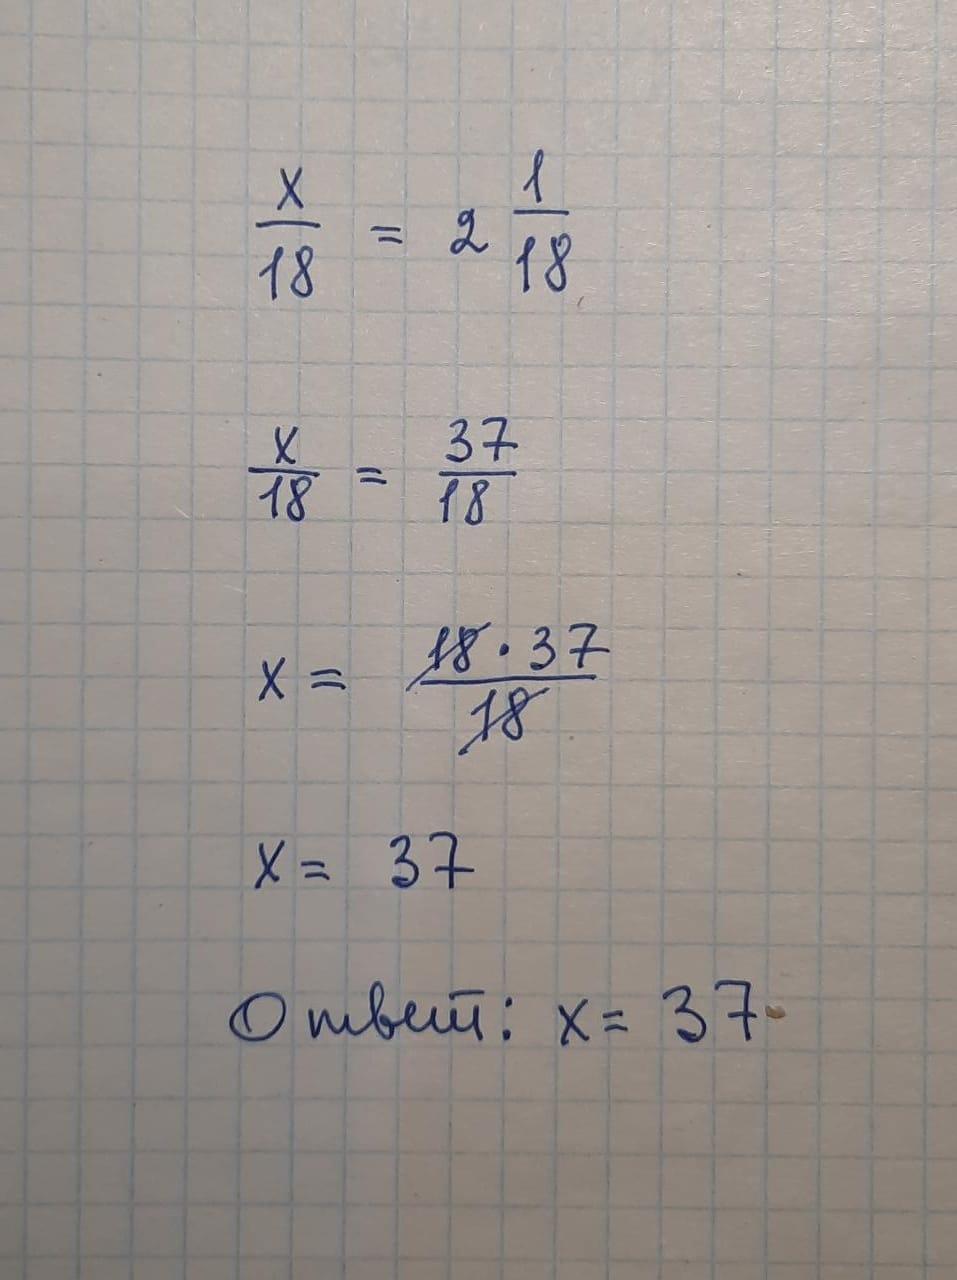 x/18 = 2 1/18
x/18 = 37/18
x = 18·37/18
x = 37
Ответ: x = 37